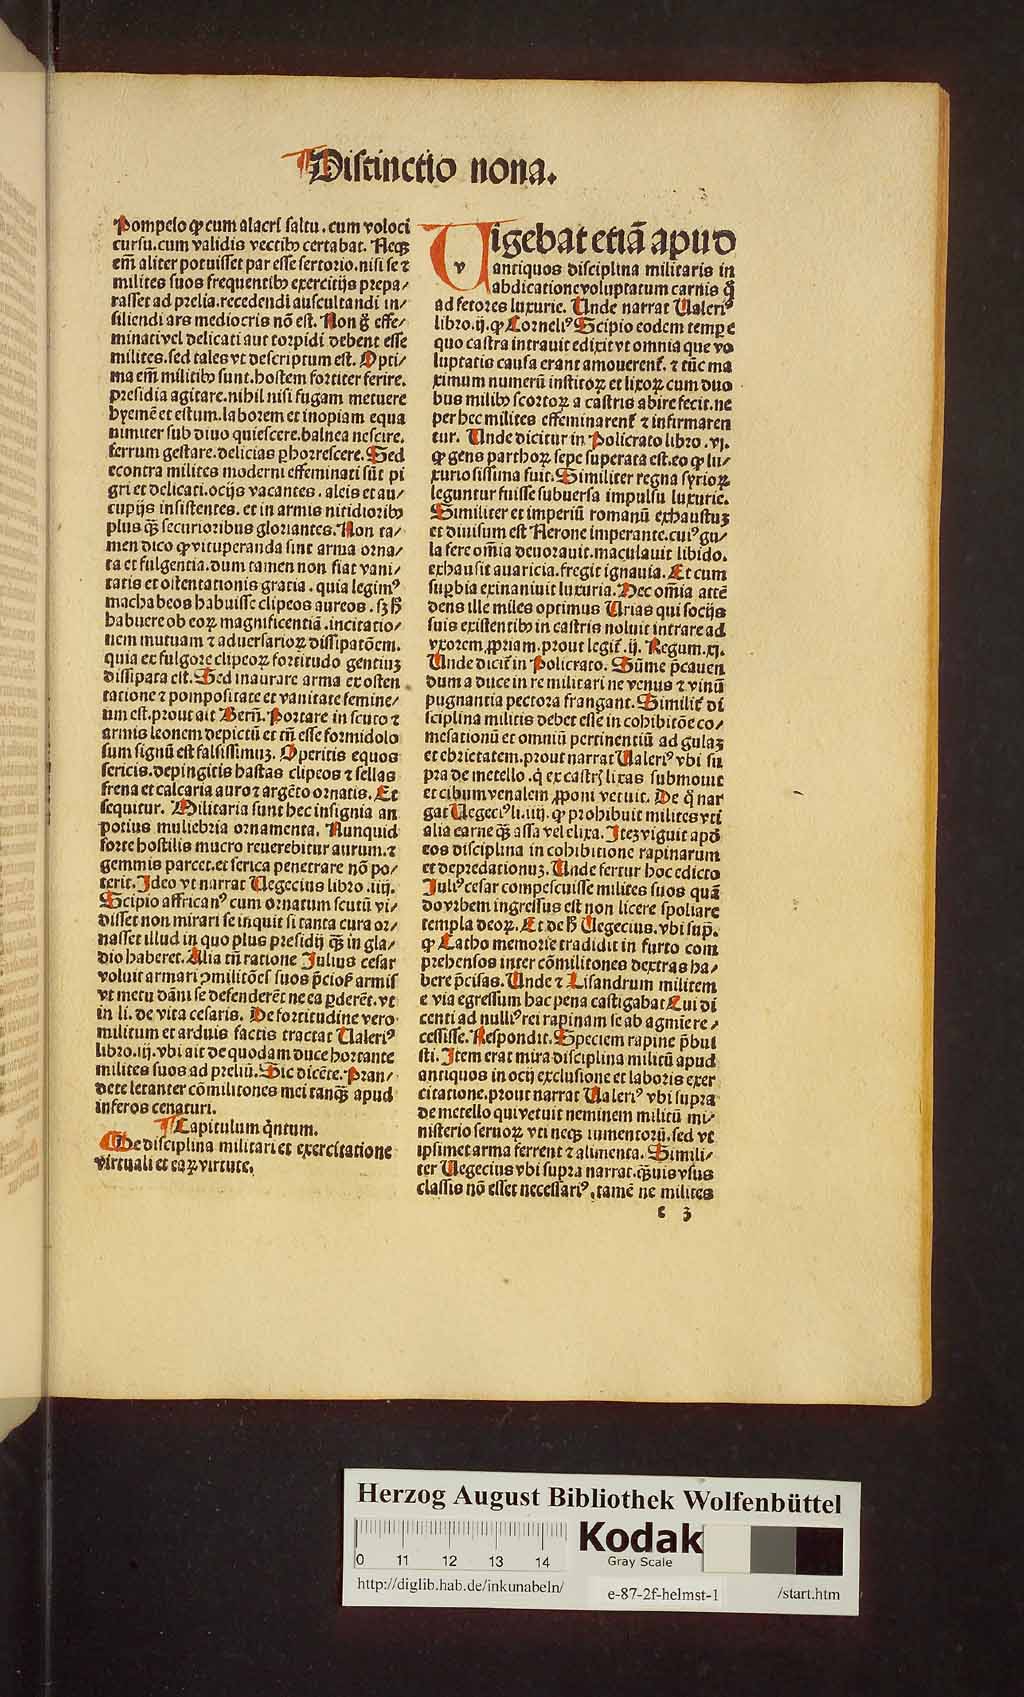 Distinctio nona.
Pompeio ꝙ cum alacri saltu. cum veloci
cursu. cum validis vectibꝰ certabat. Neqꝫ
em̄ aliter potuisset par esse sertorio. nisi se ⁊
milites suos frequentibꝰ exercitijs prepa/
rasset ad prelia. recedendi auscultandi in/
siliendi ars mediocris nō est. Non g̊ effe/
minati vel delicati aut torpidi debent esse
milites. sed tales vt descriptum est. Opti/
ma em̄ militibꝰ sunt. hostem fortiter ferire.
presidia agitare. nihil nisi fugam metuere
hyemē et estum. laborem et inopiam equa
nimiter sub diuo quiescere. balnea nescire.
ferrum gestare. delicias ꝑhorrescere. Sed
econtra milites moderni effeminati sūt pi
gri et delicati. ocijs vacantes. aleis et au/
cupijs insistentes. et in armis nitidioribꝰ
plus qꝫ̄ securioribus gloriantes. Non ta/
men dico ꝙ vituperanda sint arma orna/
ta et fulgentia. dum tamen non fiat vani/
tatis et ostentationis gratia. quia legimꝰ
machabeos habuisse clipeos aureos. sꝫ h̄
habuere ob eoꝝ magnificentiā. incitatio/
nem mutuam ⁊ aduersarioꝝ dissipatōem.
quia ex fulgore clipeoꝝ fortitudo gentiuꝫ
dissipata est. Sed inaurare arma ex osten
tatione ⁊ pompositate et vanitate femine/
um est. prout ait Bern̄. Portare in scuto ⁊
armis leonem depictū et tn̄ esse formidolo
sum signū est falsissimuꝫ. Operitis equos
sericis. depingitis hastas clipeos ⁊ sellas
frena et calcaria auro ⁊ argēto ornatis. Et
sequitur. Militaria sunt hec insignia an
potius muliebria ornamenta. Nunquid
forte hostilis mucro reuerebitur aurum. ⁊
gemmis parcet. et serica penetrare nō po/
terit. Ideo vt narrat Uegecius libro .iiij.
Scipio affricanꝰ cum ornatum scutū vi/
disset non mirari se inquit si tanta cura or/
nasset illud in quo plus presidij qꝫ̄ in gla/
dio haberet. Alia tn̄ ratione Julius cesar
voluit armari ꝯmilitōes suos p̄ciosꝭ armis
vt metu dāni se defenderēt ne ea ꝑderēt. vt
in li. de vita cesaris. De fortitudine vero
militum et arduis factis tractat Ualeriꝰ
libro .iij. vbi ait de quodam duce hortante
milites suos ad preliū. Sic dicēte. Pran/
dete letanter cōmilitones mei tanqꝫ̄ apud
inferos cenaturi.
Capitulum q̇ntum.
De disciplina militari et exercitatione
virtuali et eaꝝ virtute.
Uigebat etiā apud
v
antiquos disciplina militaris in
abdicatione voluptatum carnis q̄
ad fetores luxurie. Unde narrat Ualeriꝰ
libro .ij. ꝙ Corneliꝰ Scipio eodem tempe
quo castra intrauit edixit vt omnia que vo
luptatis causa erant amouerentᷣ. ⁊ tūc ma
ximum numerū institoꝝ et lixoꝝ cum duo
bus milibꝰ scortoꝝ a castris abire fecit. ne
per hec milites effeminarentᷣ ⁊ infirmaren
tur. Unde dicitur in Policrato libro .vj.
ꝙ gens parthoꝝ sepe superata est. eo ꝙ lu/
xuriosissima fuit. Similiter regna syrioꝝ
leguntur fuisse subuersa impulsu luxurie.
Similiter et imperiū romanū exhaustuꝫ
et diuisum est Nerone imperante. cuiꝰ gu/
la fere om̄ia deuorauit. maculauit libido.
exhausit auaricia. fregit ignauia. Et cum
suꝑbia exinaniuit luxuria. Hec om̄ia attē
dens ille miles optimus Urias qui socijs
suis existentibꝰ in castris noluit intrare ad
vxorem ꝓpriam. prout legitᷣ .ij. Regum .xj.
Unde dicitᷣ in Policrato. Sūme p̄cauen
dum a duce in re militari ne venus ⁊ vinū
pugnantia pectora frangant. Similitᷣ di
sciplina militis debet esse in cohibitōe co/
mesationū et omniū pertinentiū ad gulaꝫ
et ebrietatem. prout narrat Ualeriꝰ vbi su
pra de metello. q̇ ex castrꝭ lixas submouit
et cibum venalem ꝓponi vetuit. De q̊ nar
gat Uegeciꝰ li. iiij. ꝙ prohibuit milites vti
alia carne qꝫ̄ assa vel elixa. Iteꝫ viguit apd̓
eos disciplina in cohibitione rapinarum
et depredationuꝫ. Unde fertur hoc edicto
Juliꝰ cesar compescuisse milites suos quā
do vrbem ingressus est non licere spoliare
templa deoꝝ. Et de h̄ Uegecius. vbi sup̄.
ꝙ Catho memorie tradidit in furto com
prehensos inter cōmilitones dextras ha/
bere p̄cisas. Unde ⁊ Lisandrum militem
e via egressum hac pena castigabat Cui di
centi ad nulliꝰ rei rapinam se ab agmīe re/
cessisse. Respondit. Speciem rapine p̄bui
sti. Item erat mira disciplina militū apud
antiquos in ocij exclusione et laboris exer
citatione. prout narrat Ualeriꝰ vbi supra
de metello qui vetuit neminem militū mi/
nisterio seruoꝝ vti neqꝫ iumentorū. sed vt
ipsimet arma ferrent ⁊ alimenta. Simili/
ter Uegecius vbi supra narrat. qꝫ̄uis vsus
classis nō esset necessariꝰ, tamē ne milites
c 3
Herzog August Bibliothek Wolfenbüttel
0 11 12 13 14
Kodak
Gray Scale
http://diglib.hab.de/inkunabeln/ e-87-2f-helmst-1 /start.htm